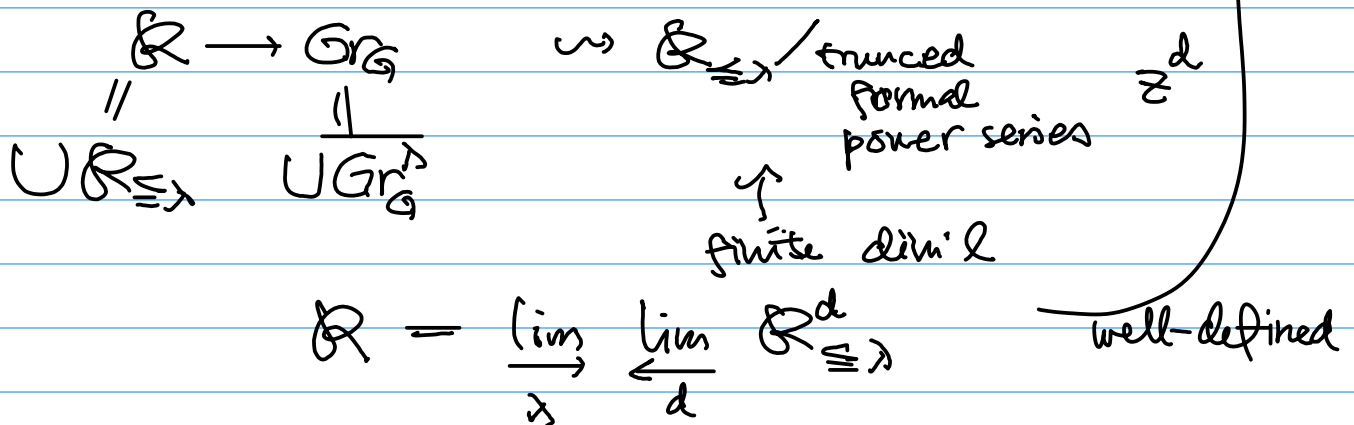 R → Gr_G ⇝ R_{≤λ} / trunced
formal z^d
|| || power series
∪R_{≤λ} ∪\overline{Gr}_G^λ
↑
finite dim'l
R = lim→_λ lim←_d R^d_{≤λ} well-defined